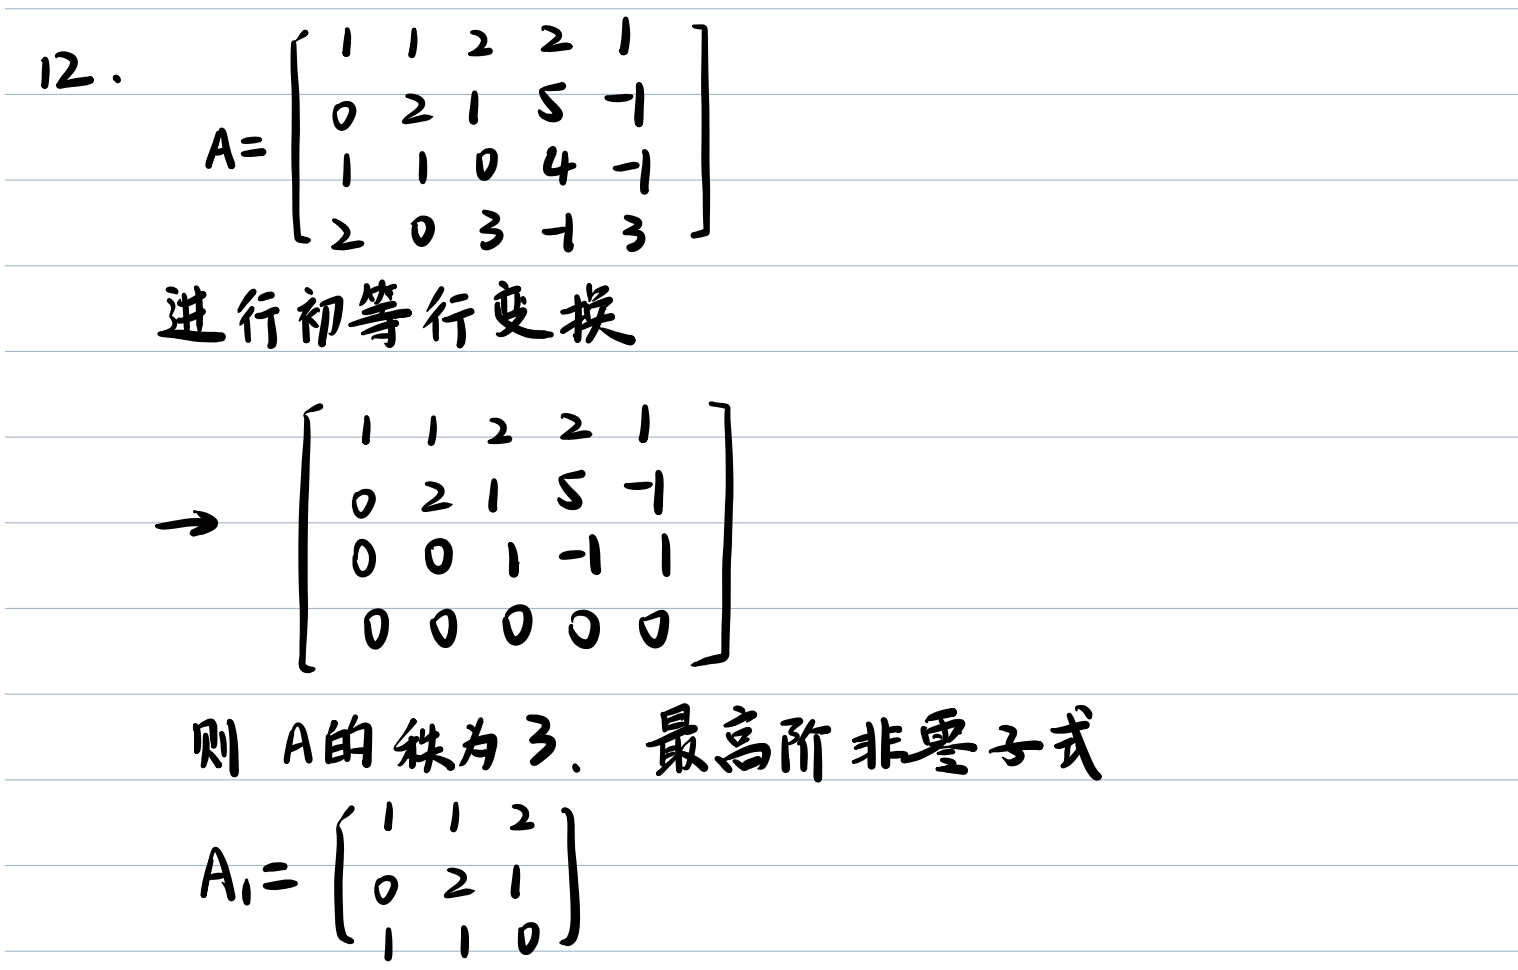 12.
A= [ 1 1 2 2 1
0 2 1 5 -1
1 1 0 4 -1
2 0 3 -1 3 ]
进行初等行变换
→ [ 1 1 2 2 1
0 2 1 5 -1
0 0 1 -1 1
0 0 0 0 0 ]
则 A的秩为3. 最高阶非零子式
A₁= [ 1 1 2
0 2 1
1 1 0 ]